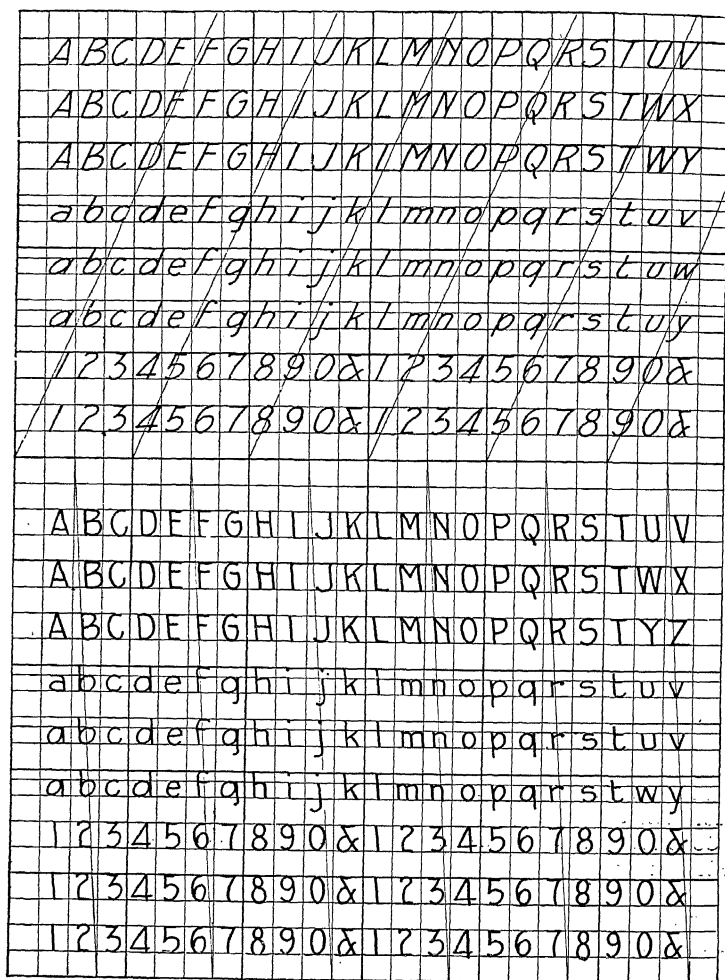 A B C D E F G H I J K L M N O P Q R S T U V
A B C D E F G H I J K L M N O P Q R S T W X
A B C D E F G H I J K L M N O P Q R S T W Y
a b c d e f g h i j k l m n o p q r s t u v
a b c d e f g h i j k l m n o p q r s t u w
a b c d e f g h i j k l m n o p q r s t u y
1 2 3 4 5 6 7 8 9 0 & 1 2 3 4 5 6 7 8 9 0 &
1 2 3 4 5 6 7 8 9 0 & 1 2 3 4 5 6 7 8 9 0 &
A B C D E F G H I J K L M N O P Q R S T U V
A B C D E F G H I J K L M N O P Q R S T W X
A B C D E F G H I J K L M N O P Q R S T Y Z
a b c d e f g h i j k l m n o p q r s t u v
a b c d e f g h i j k l m n o p q r s t u v
a b c d e f g h i j k l m n o p q r s t w y
1 2 3 4 5 6 7 8 9 0 & 1 2 3 4 5 6 7 8 9 0 &
1 2 3 4 5 6 7 8 9 0 & 1 2 3 4 5 6 7 8 9 0 &
1 2 3 4 5 6 7 8 9 0 & 1 2 3 4 5 6 7 8 9 0 &